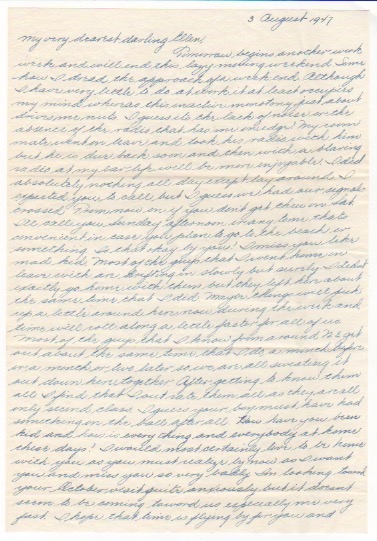 3 August 1947
My very dearest darling Ellen,
Tomorrow begins another work
week and will end this lazy moving weekend. Some
how I dread the approach of a week end. Although
I have very little to do at work it at least occupies
my mind whereas this inactive monotony just about
drives me nuts. I guess its the lack of noise or the
absence of the radio that has me on edge. My room
mate went on leave and took his radio with him
but he is due back soon and then with a blaring
radio at my ear life will be more enjoyable. I did
absolutely nothing all day except lay around. I
expected you to call but I guess we had our signals
crossed. Tomorrow or if you dont get thru on Sat
Ill call you Sunday afternoon at any time thats
convenient in case you plan to go to the beach or
something. Is that okay by you? I miss you like
mad kid. Most of the guys that I went home on
leave with are drifting in slowly but surely. I didnt
exactly go home with them but they left here about
the same time that I did. Maybe things will pick
up a little around here now during the week and
time will roll along a little faster for all of us.
Most of the guys that I know from around get
out about the same time that I do, a month before
or a month or two later so we are all sweating it
out down here together. After getting to know them
all I find that I out rate them all as they are all
only second class. I guess your boy must have had
something on the ball after all. How have you been
kid and how is everything and everybody at home
these days? I would most certainly love to be home
with you as you must realize by now as I want
you and miss you so very badly. Im looking toward
your October visit quite anxiously but it doesnt
seem to be coming toward us especially me very
fast. I hope that time is flying by for you and